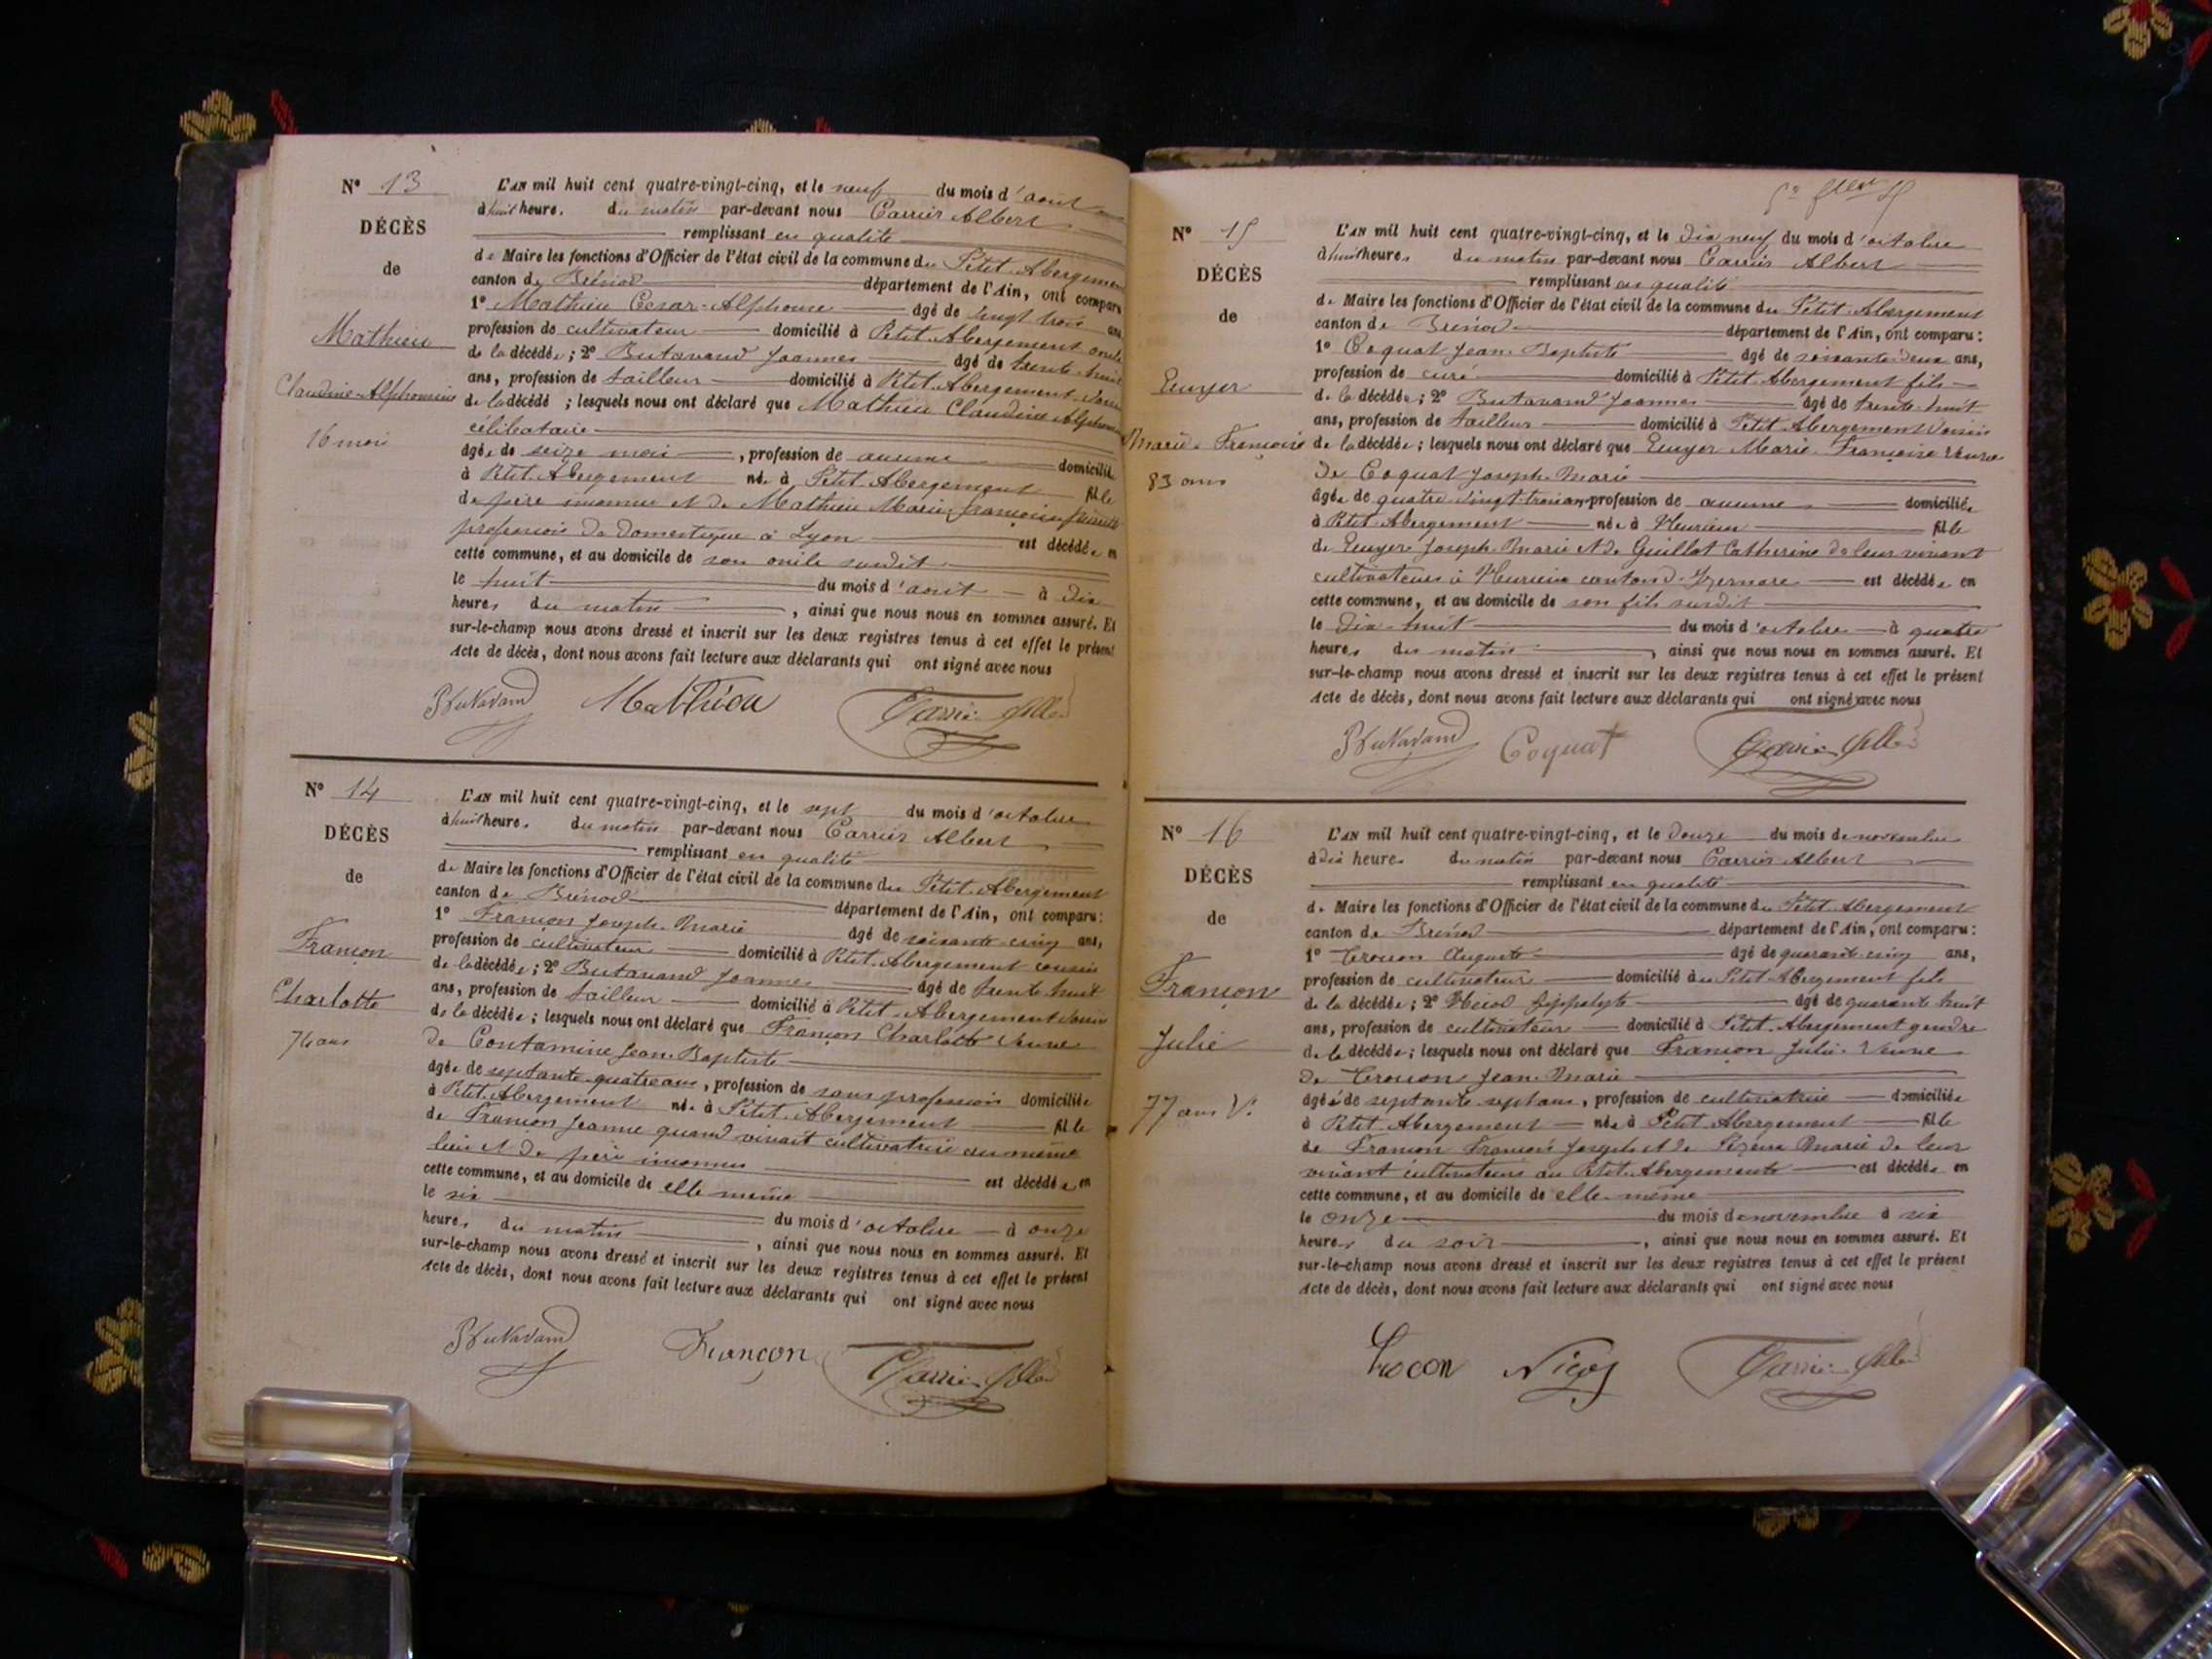 N° 13
DÉCÈS
de
Mathieu
Claudine-Alphonsine
16 mois
L'AN mil huit cent quatre-vingt-cinq, et le neuf du mois d'août
à huit heures du matin par-devant nous Carrier Albert
remplissant en qualité
de Maire les fonctions d'Officier de l'état civil de la commune du Petit-Abergement
canton de Brénod département de l'Ain, ont comparu
1° Mathieu Cesar-Alphonse âgé de vingt trois ans
profession de cultivateur domicilié à Petit Abergement oncle
de la décédée; 2° Butavand Joannes âgé de trente-huit
ans, profession de tailleur domicilié à Petit-Abergement voisin
de la décédé ; lesquels nous ont déclaré que Mathieu Claudine Alphonsine
célibataire
âgée de seize mois, profession de aucune domiciliée
à Petit-Abergement née à Petit Abergement fille
de père inconnu et de Mathieu Marie-Françoise
profession de domestique à Lyon est décédée en
cette commune, et au domicile de son oncle susdit
le huit du mois d'août à dix
heures du matin, ainsi que nous nous en sommes assuré. Et
sur-le-champ nous avons dressé et inscrit sur les deux registres tenus à cet effet le présent
Acte de décès, dont nous avons fait lecture aux déclarants qui ont signé avec nous
Butavand Mathieu Carrier Albert
N° 14
DÉCÈS
de
Françon
Charlotte
74 ans
L'AN mil huit cent quatre-vingt-cinq, et le sept du mois d'octobre
à huit heures du matin par-devant nous Carrier Albert
remplissant en qualité
de Maire les fonctions d'Officier de l'état civil de la commune du Petit-Abergement
canton de Brénod département de l'Ain, ont comparu:
1° Françon Joseph-Marie âgé de soixante-cinq ans,
profession de cultivateur domicilié à Petit-Abergement cousin
de la décédée; 2° Butavand Joannes âgé de trente-huit
ans, profession de tailleur domicilié à Petit-Abergement voisin
de la décédée; lesquels nous ont déclaré que Françon Charlotte Veuve
de Contamine Jean-Baptiste
âgée de septante-quatre ans, profession de sans profession domiciliée
à Petit-Abergement née à Petit-Abergement fille
de Françon Jeanne quand vivait cultivatrice au même
lieu et de père inconnu est décédée en
cette commune, et au domicile de elle même
le six du mois d'octobre à onze
heures du matin, ainsi que nous nous en sommes assuré. Et
sur-le-champ nous avons dressé et inscrit sur les deux registres tenus à cet effet le présent
Acte de décès, dont nous avons fait lecture aux déclarants qui ont signé avec nous
Butavand Françon Carrier Albert
N° 15
DÉCÈS
de
Euyer
Marie-Françoise
83 ans
L'AN mil huit cent quatre-vingt-cinq, et le dix neuf du mois d'octobre
à huit heures du matin par-devant nous Carrier Albert
remplissant en qualité
de Maire les fonctions d'Officier de l'état civil de la commune du Petit-Abergement
canton de Brénod département de l'Ain, ont comparu:
1° Coquat Jean-Baptiste âgé de soixante-deux ans,
profession de curé domicilié à Petit-Abergement fils
de la décédée; 2° Butavand Joannes âgé de trente-huit
ans, profession de tailleur domicilié à Petit-Abergement voisin
de la décédée; lesquels nous ont déclaré que Euyer Marie-Françoise Veuve
de Coquat Joseph-Marie
âgée de quatre-vingt-trois ans, profession de aucune domiciliée
à Petit-Abergement née à fille
de Euyer Joseph-Marie et de Guillot Catherine de leur vivant
cultivateurs à canton d'Izernore est décédée en
cette commune, et au domicile de son fils susdit
le dix-huit du mois d'octobre à quatre
heures du matin, ainsi que nous nous en sommes assuré. Et
sur-le-champ nous avons dressé et inscrit sur les deux registres tenus à cet effet le présent
Acte de décès, dont nous avons fait lecture aux déclarants qui ont signé avec nous
Butavand Coquat Carrier Albert
N° 16
DÉCÈS
de
Françon
Julie
77 ans V.
L'AN mil huit cent quatre-vingt-cinq, et le douze du mois de novembre
à dix heures du matin par-devant nous Carrier Albert
remplissant en qualité
de Maire les fonctions d'Officier de l'état civil de la commune du Petit-Abergement
canton de Brénod département de l'Ain, ont comparu:
1° Auguste âgé de quarante-cinq ans,
profession de cultivateur domicilié à Petit Abergement fils
de la décédée; 2° Hippolyte âgé de quarante huit
ans, profession de cultivateur domicilié à Petit-Abergement gendre
de la décédée; lesquels nous ont déclaré que Françon Julie Veuve
de Jean-Marie
âgée de septante sept ans, profession de cultivatrice domiciliée
à Petit Abergement née à Petit Abergement fille
de Françon François Joseph et de Marie de leur
vivant cultivateurs au Petit-Abergement est décédée en
cette commune, et au domicile de elle-même
le onze du mois de novembre à six
heures du soir, ainsi que nous nous en sommes assuré. Et
sur-le-champ nous avons dressé et inscrit sur les deux registres tenus à cet effet le présent
Acte de décès, dont nous avons fait lecture aux déclarants qui ont signé avec nous
Carrier Albert